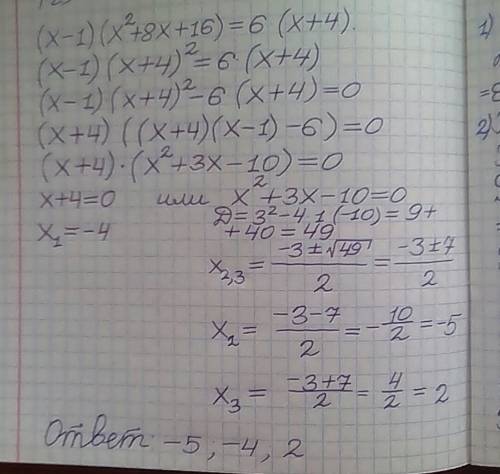 (x-1)(x²+8x+16)=6 (x+4).
(x-1)(x+4)²=6·(x+4)
(x-1)(x+4)²-6 (x+4)=0
(x+4)((x+4)(x-1)-6)=0
(x+4)·(x²+3x-10)=0
x+4=0 или x²+3x-10=0
x₁=-4 Д=3²-4·1·(-10)=9+
+40=49
x₂,₃= (-3±√49)/2 = (-3±7)/2
x₂= (-3-7)/2 = -10/2 = -5
x₃= (-3+7)/2 = 4/2 = 2
Ответ: -5, -4, 2
1)
2)